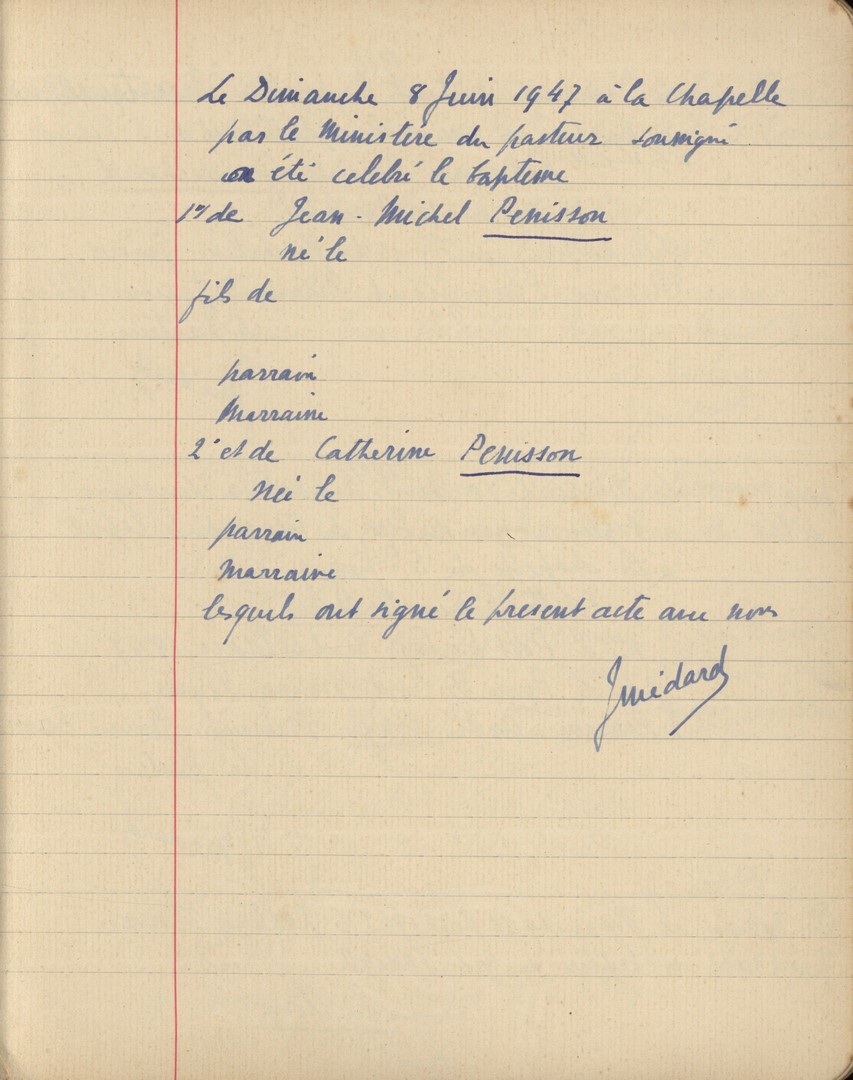 Le Dimanche 8 Juin 1947 à la Chapelle
par le Ministère du pasteur soussigné
été celebré le bapteme
1er de Jean-Michel Penisson
né le
fils de
parrain
Marraine
2° et de Catherine Penisson
née le
parrain
Marraine
lesquels ont signé le present acte avec nous
Jmédard